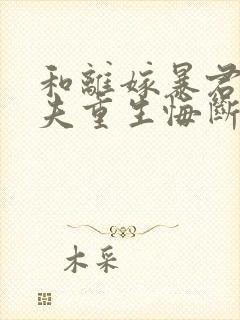 和離嫁暴君
夫重生悔斷
木采